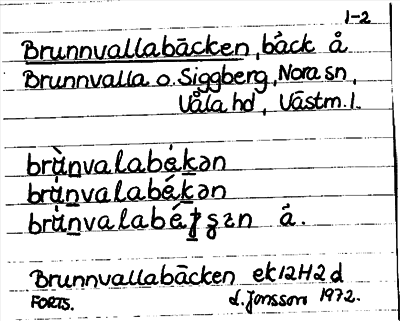 1-2
Brunnvallabäcken, bäck å
Brunnvalla o. Siggberg, Nora sn,
Våla hd, Västm. l.
brùnvalabékən
brùnvalabékən
å.
Brunnvallabäcken ek 12H2d
FORTS. L. Jonsson 1972.